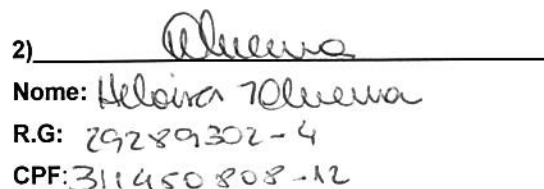 2)
Nome: Heloisa
R.G: 29289302-4
CPF: 311450808-12